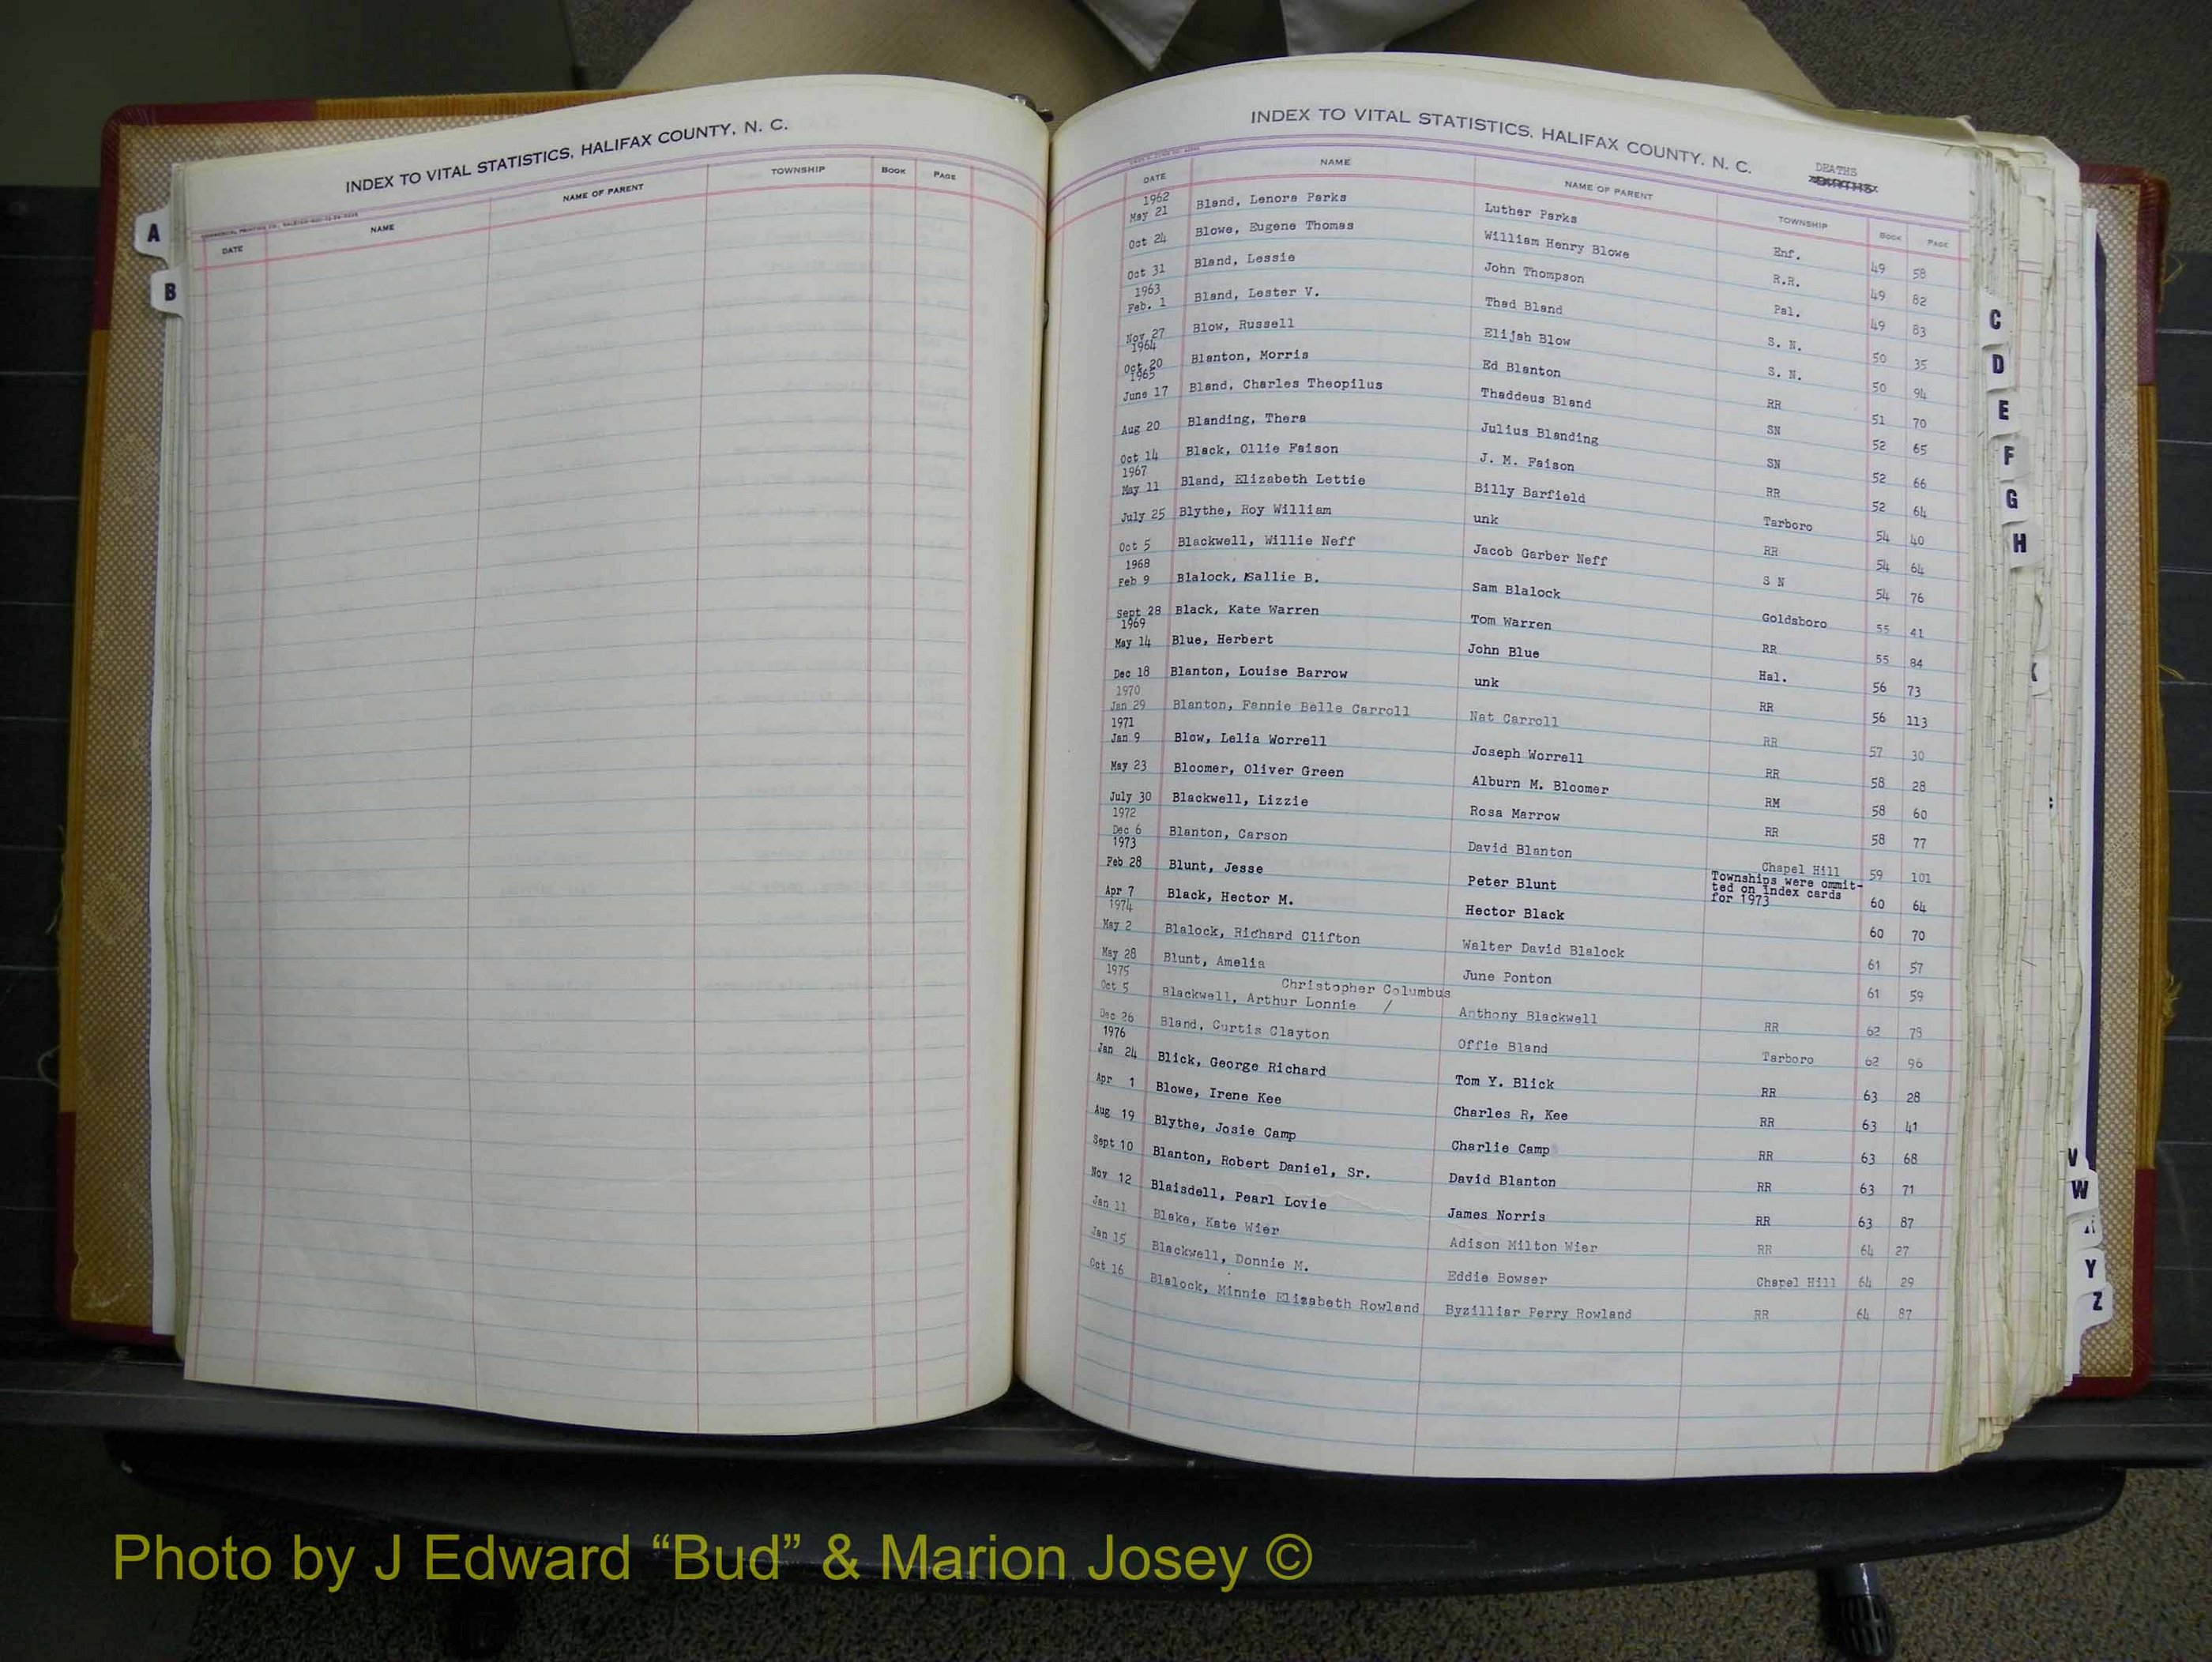 INDEX TO VITAL STATISTICS, HALIFAX COUNTY, N. C.
DATE NAME NAME OF PARENT TOWNSHIP BOOK PAGE
A
B
INDEX TO VITAL STATISTICS, HALIFAX COUNTY, N. C.
DEATHS
DATE NAME NAME OF PARENT TOWNSHIP BOOK PAGE
1962
May 21 Bland, Lenora Parks Luther Parks Enf. 49 58
Oct 24 Blowe, Eugene Thomas William Henry Blowe R.R. 49 82
Oct 31 Bland, Lessie John Thompson Pal. 49 83
1963
Feb. 1 Bland, Lester V. Thad Bland S. N. 50 35
Nov 27 Blow, Russell Elijah Blow S. N. 50 94
1964
Oct 20 Blanton, Morris Ed Blanton RR 51 70
1965
June 17 Bland, Charles Theopilus Thaddeus Bland SN 52 65
Aug 20 Blanding, Thera Julius Blanding SN 52 66
Oct 14 Black, Ollie Faison J. M. Faison RR 52 64
1967
May 11 Bland, Elizabeth Lettie Billy Barfield Tarboro 54 40
July 25 Blythe, Roy William unk RR 54 64
Oct 5 Blackwell, Willie Neff Jacob Garber Neff S N 54 76
1968
Feb 9 Blalock, Sallie B. Sam Blalock Goldsboro 55 41
Sept 28 Black, Kate Warren Tom Warren RR 55 84
1969
May 14 Blue, Herbert John Blue Hal. 56 73
Dec 18 Blanton, Louise Barrow unk RR 56 113
1970
Jan 29 Blanton, Fannie Belle Carroll Nat Carroll RR 57 30
1971
Jan 9 Blow, Lelia Worrell Joseph Worrell RR 58 28
May 23 Bloomer, Oliver Green Alburn M. Bloomer RM 58 60
July 30 Blackwell, Lizzie Rosa Marrow RR 58 77
1972
Dec 6 Blanton, Carson David Blanton Chapel Hill 59 101
1973
Feb 28 Blunt, Jesse Peter Blunt Townships were ommit-
ted on index cards
for 1973 60 64
Apr 7 Black, Hector M. Hector Black 60 70
1974
May 2 Blalock, Richard Clifton Walter David Blalock 61 57
May 28 Blunt, Amelia June Ponton 61 59
1975
Christopher Columbus
Oct 5 Blackwell, Arthur Lonnie / Anthony Blackwell RR 62 73
Dec 26 Bland, Curtis Clayton Offie Bland Tarboro 62 96
1976
Jan 24 Blick, George Richard Tom Y. Blick RR 63 28
Apr 1 Blowe, Irene Kee Charles R, Kee RR 63 41
Aug 19 Blythe, Josie Camp Charlie Camp RR 63 68
Sept 10 Blanton, Robert Daniel, Sr. David Blanton RR 63 71
Nov 12 Blaisdell, Pearl Lovie James Norris RR 63 87
Jan 11 Blake, Kate Wier Adison Milton Wier RR 64 27
Jan 15 Blackwell, Donnie M. Eddie Bowser Chapel Hill 64 29
Oct 16 Blalock, Minnie Elizabeth Rowland Byzilliar Perry Rowland RR 64 87
C
D
E
F
G
H
V
W
Y
Z
Photo by J Edward “Bud” & Marion Josey ©